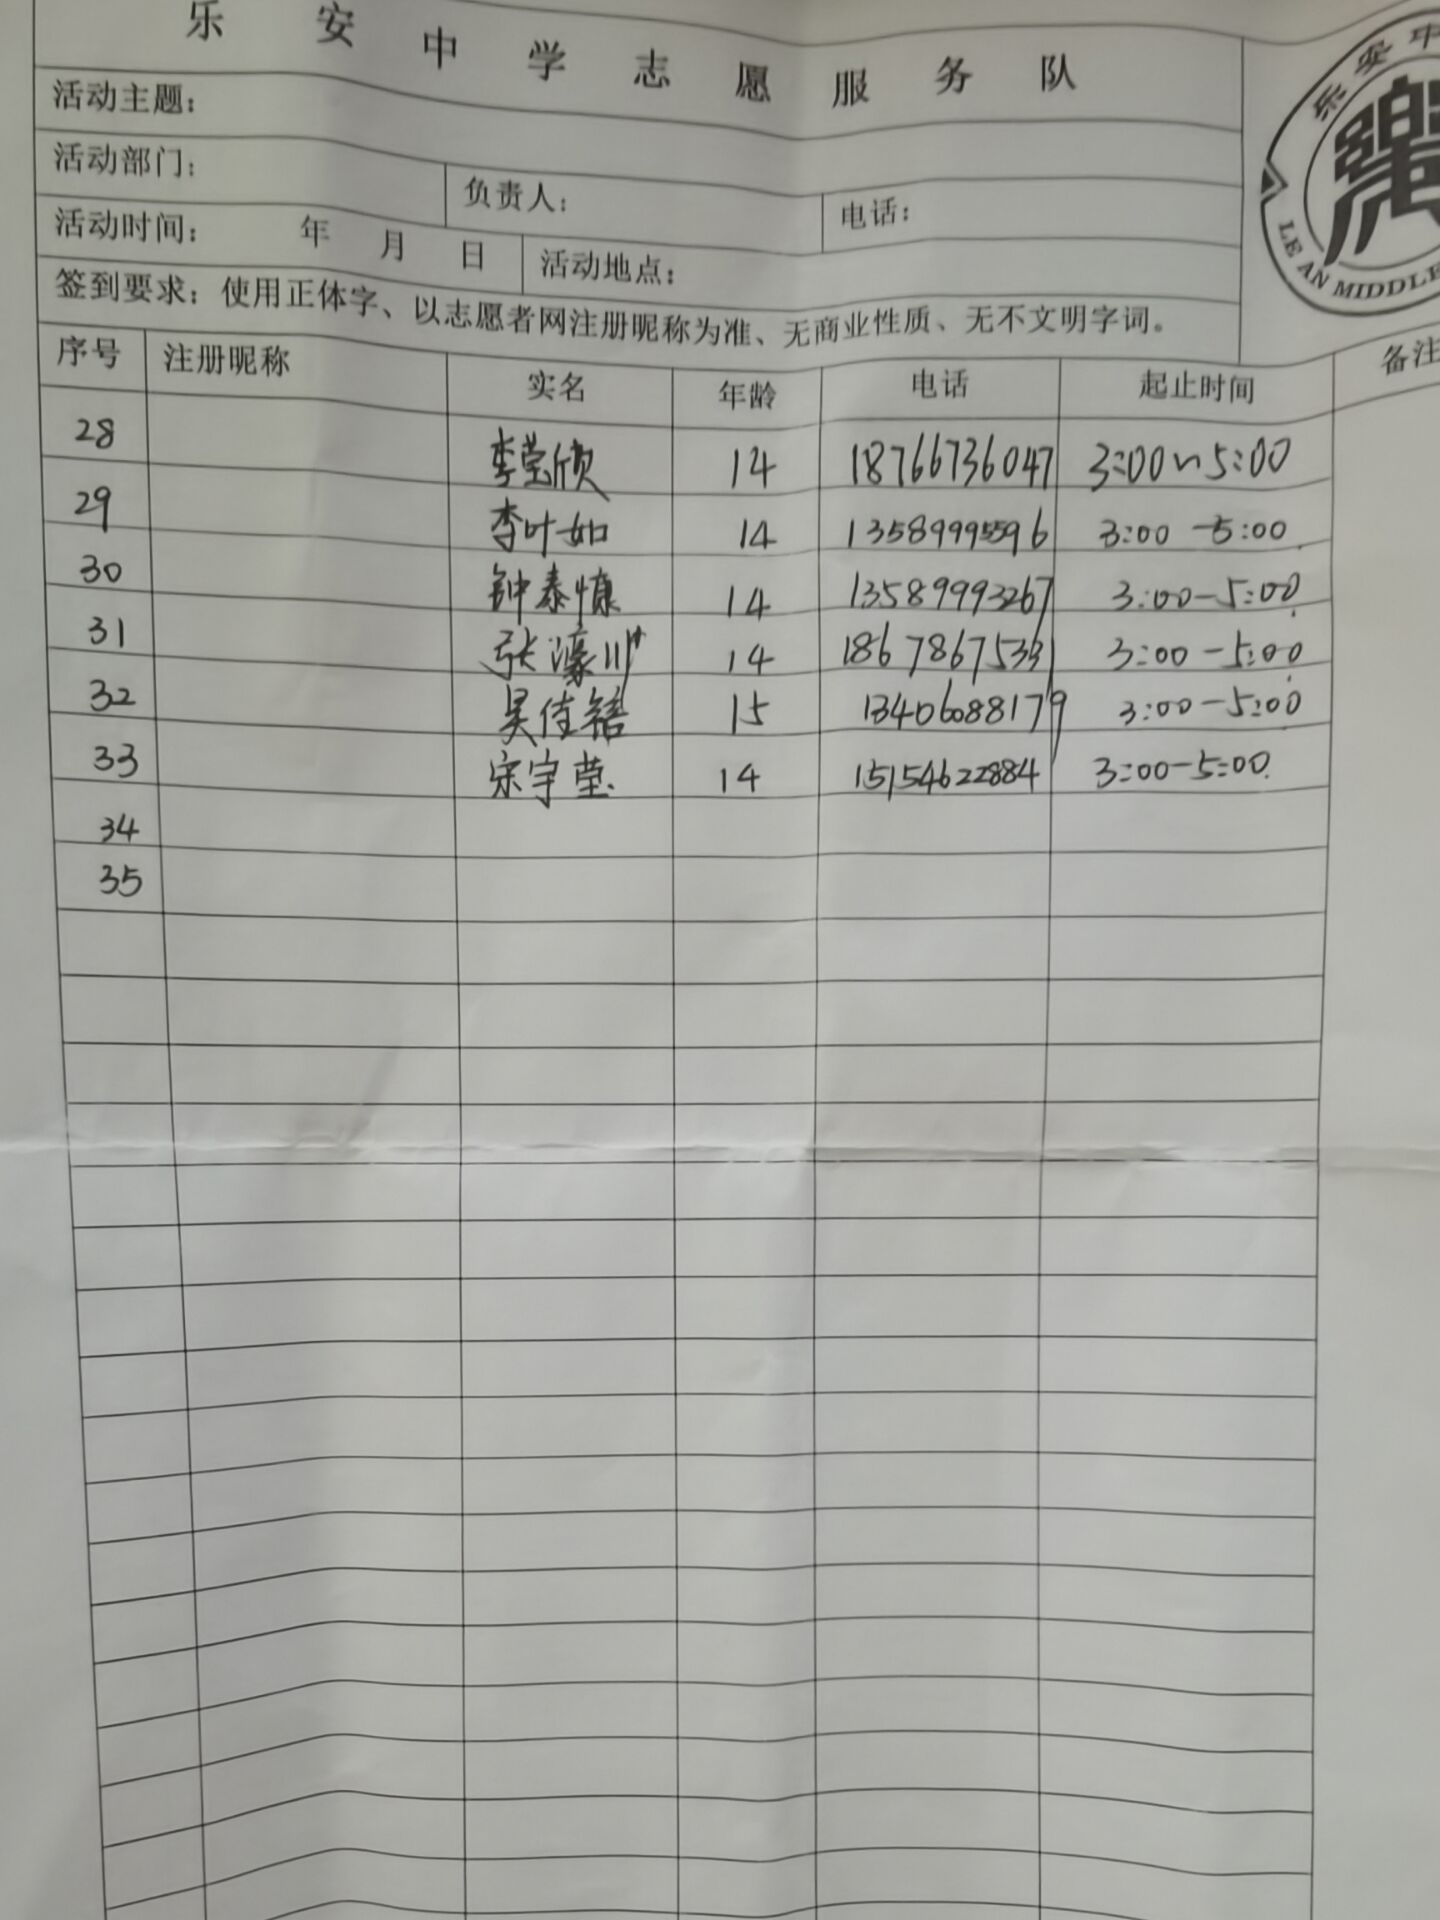 乐安中学志愿服务队
乐安中
LE AN MIDDLE
活动主题：
活动部门： 负责人： 电话：
活动时间： 年 月 日 活动地点：
签到要求：使用正体字、以志愿者网注册昵称为准、无商业性质、无不文明字词。
序号 注册昵称 实名 年龄 电话 起止时间 备注
28 李莹欣 14 18766736047 3:00~5:00
29 李叶如 14 13589995596 3:00-5:00
30 钟泰慷 14 13589993267 3:00-5:00
31 张濠川 14 18678675331 3:00-5:00
32 吴佳锫 15 13406088179 3:00-5:00
33 宋宇莹 14 15154622884 3:00-5:00.
34
35